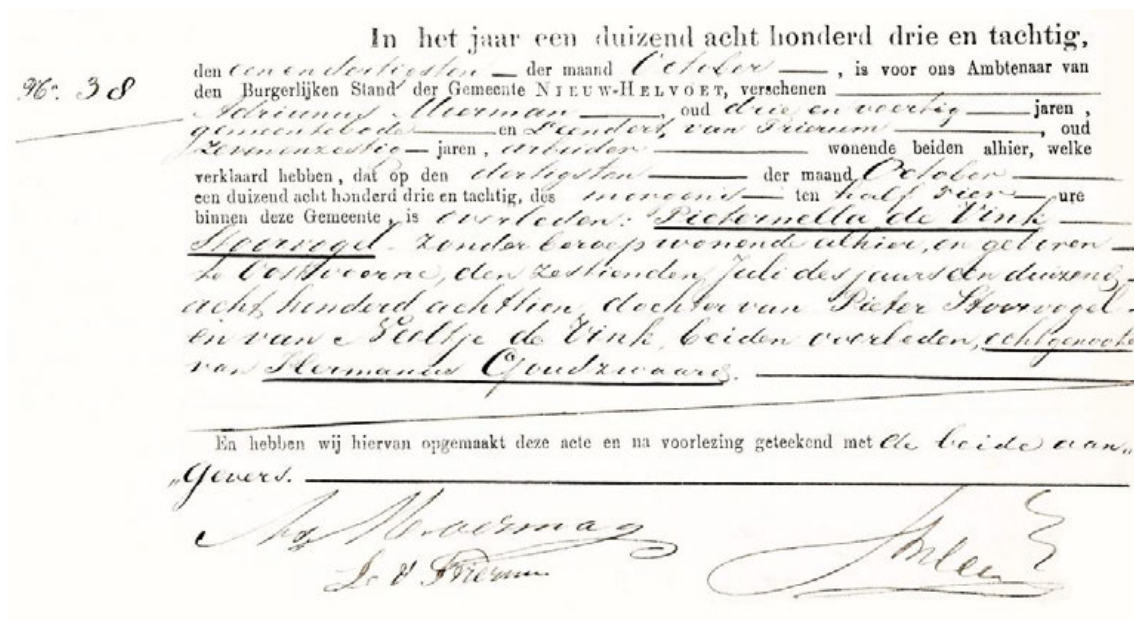 In het jaar een duizend acht honderd drie en tachtig,
No. 38
den eenendertigsten der maand October, is voor ons Ambtenaar van
den Burgerlijken Stand der Gemeente NIEUW-HELVOET, verschenen
Adrianus Moerman, oud drie en veertig jaren,
gemeentebode en Leendert van Trierum, oud
zevenenzestig jaren, arbeider wonende beiden alhier, welke
verklaard hebben, dat op den dertigsten der maand October
een duizend acht honderd drie en tachtig, des morgens ten half vier ure
binnen deze Gemeente, is overleden: Pieternella de Vink
Stoorvogel zonder beroep wonende alhier, en geboren
te Oostvoorne, den zestienden Juli des jaars een duizend
acht honderd achttien, dochter van Pieter Stoorvogel
en van Neeltje de Vink, beiden overleden, echtgenoote
van Hermanus Goudzwaard.
En hebben wij hiervan opgemaakt deze acte en na voorlezing geteekend met de beide aan„
„gevers.
Moerman
L v Trierum